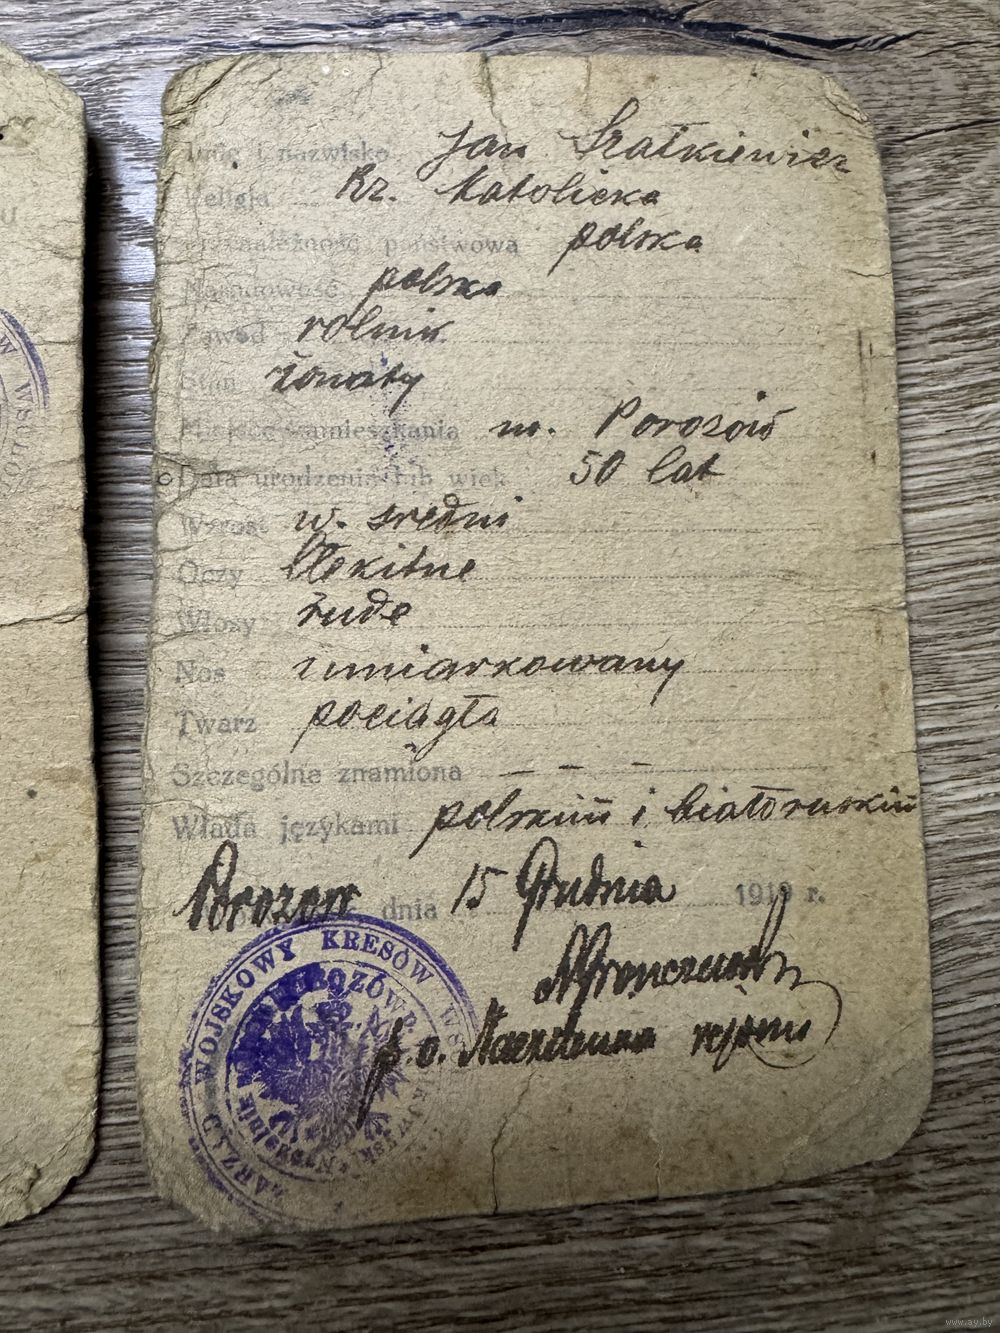 Imię i nazwisko Jan Szatkiewicz
Religja Rz. Katolicka
Przynależność państwowa polska
Narodowość polska
Zawód rolnik
Stan żonaty
Miejsce zamieszkania m. Porozów
Data urodzenia lub wiek 50 lat
Wzrost w. średni
Oczy błękitne
Włosy rude
Nos umiarkowany
Twarz pociągła
Szczególne znamiona — — —
Włada językami polskim i białoruskim
Porozow dnia 15 Grudnia 1919 r.
p. o. Naczelnika rejonu
ZARZĄD WOJSKOWY KRESÓW WS
POROZÓW
W WSCHO
www.ay.by